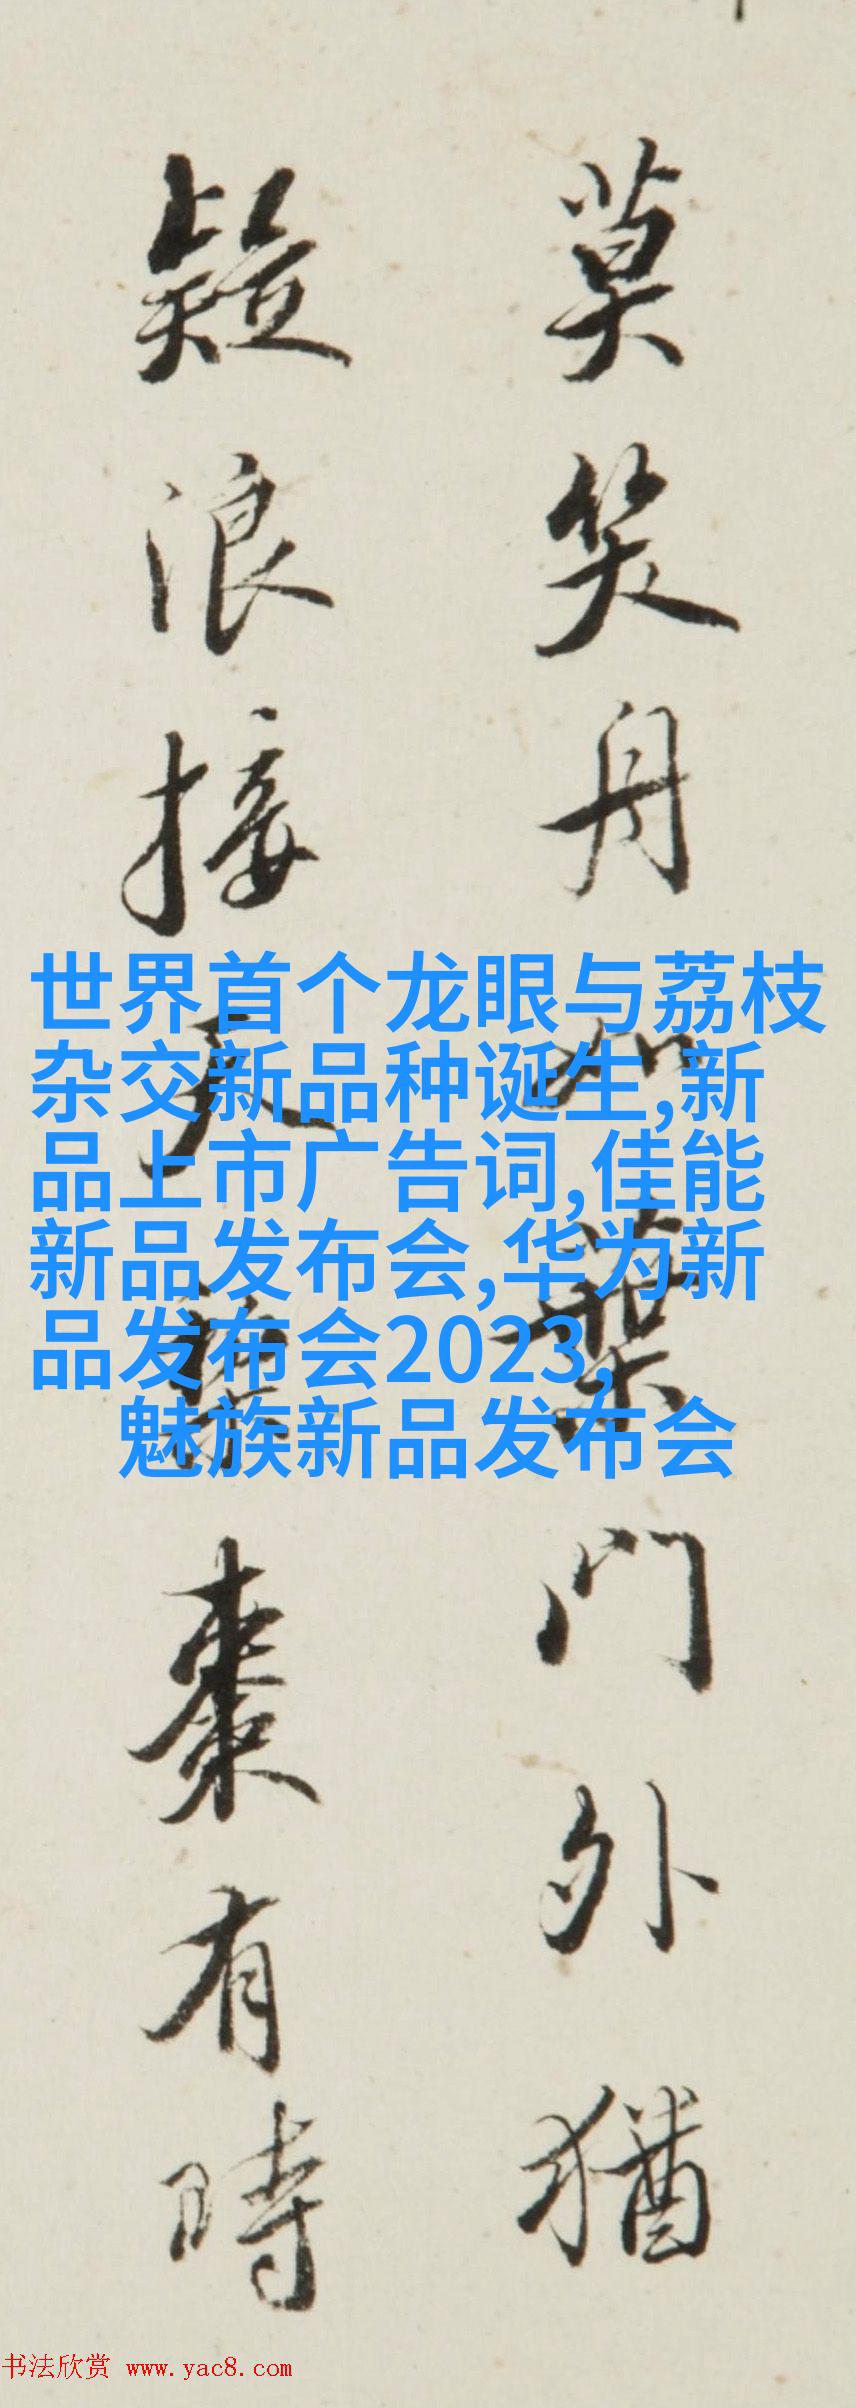 世界首个龙眼与荔枝
杂交新品种诞生,新
品上市广告词,佳能
新品发布会,华为新
品发布会2023,
魅族新品发布会
莫笑舟如葉門外猶
疑浪接天棗有時
书法欣赏 www.yac8.com